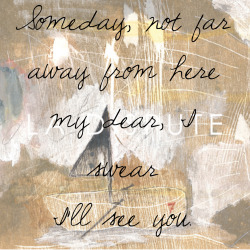 Someday, not far
away from here
my dear, I
swear
I'll see you.